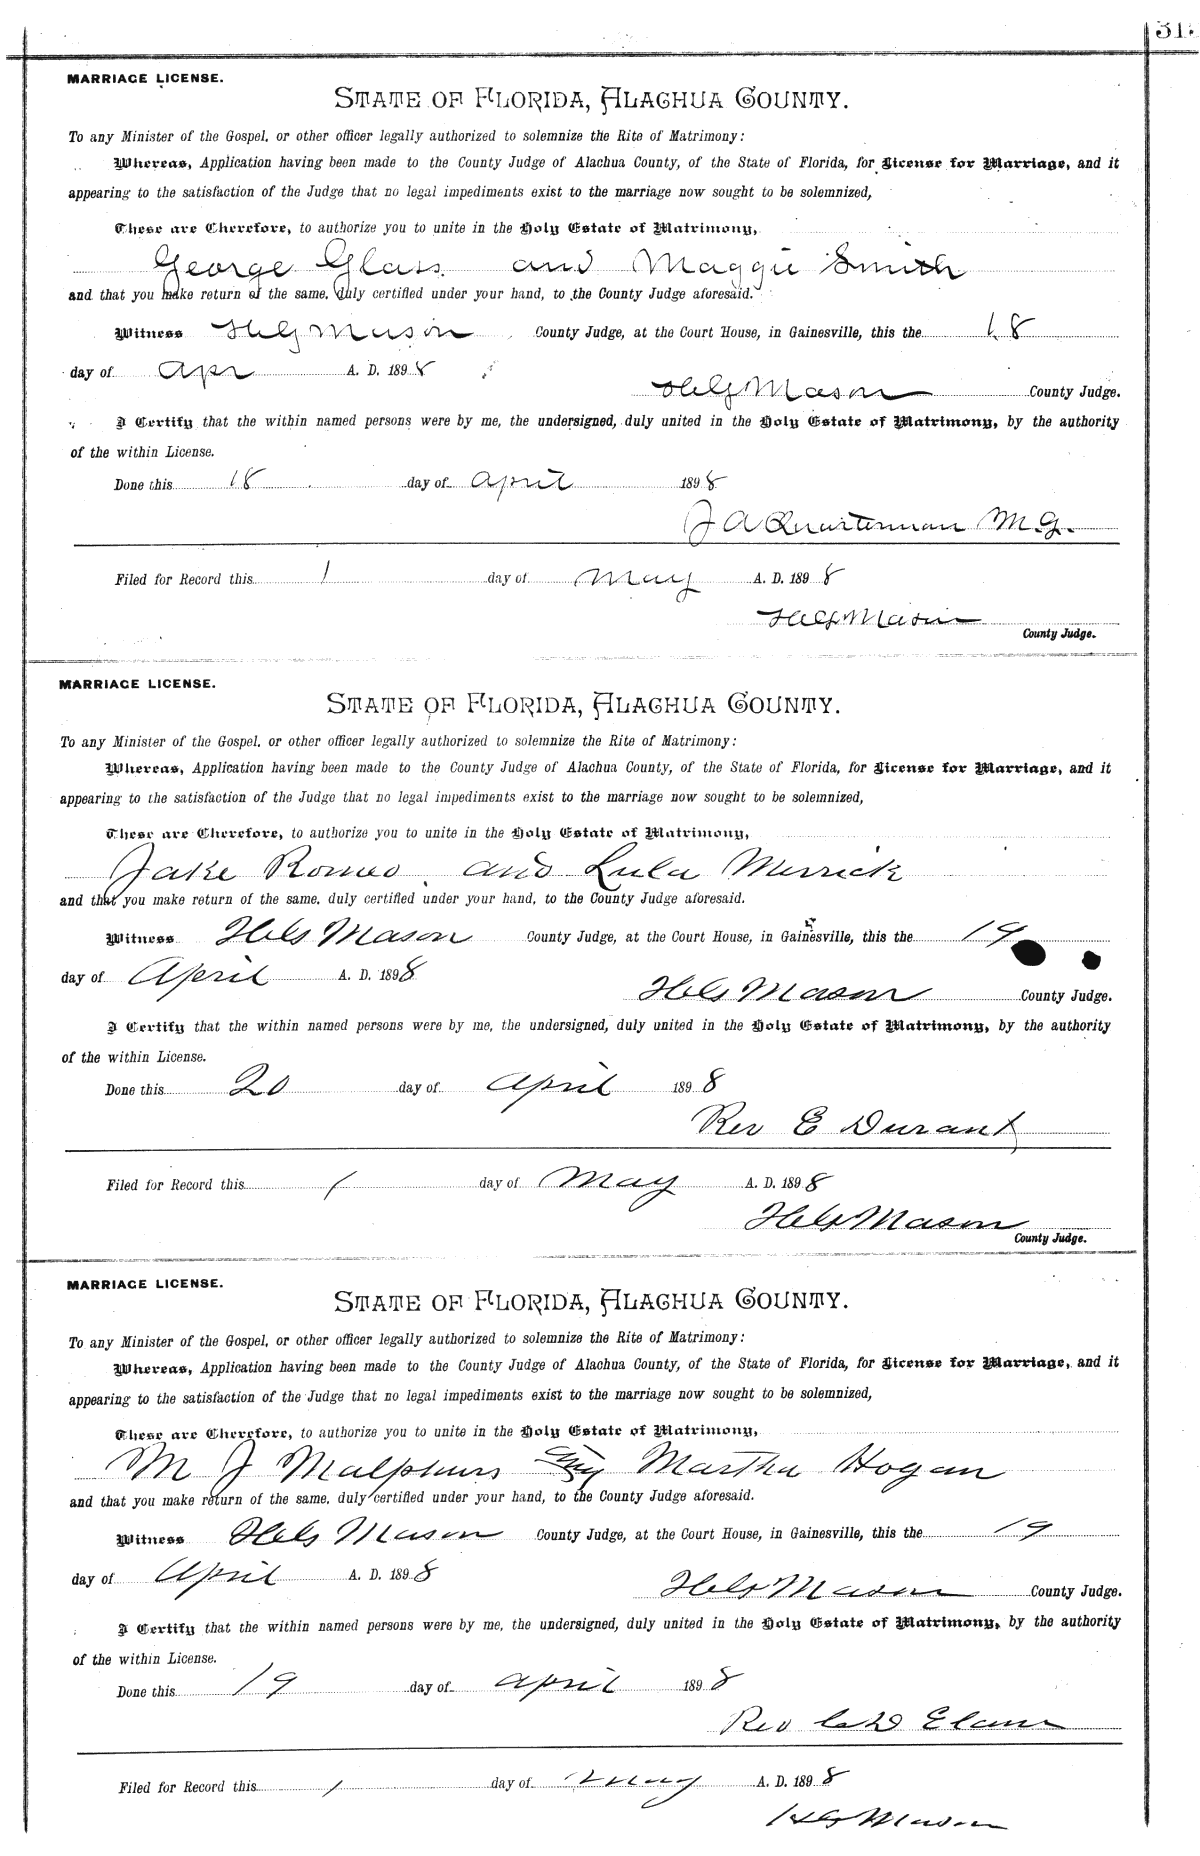 MARRIAGE LICENSE.
STATE OF FLORIDA, ALACHUA COUNTY.
To any Minister of the Gospel, or other officer legally authorized to solemnize the Rite of Matrimony:
Whereas, Application having been made to the County Judge of Alachua County, of the State of Florida, for License for Marriage, and it
appearing to the satisfaction of the Judge that no legal impediments exist to the marriage now sought to be solemnized,
These are Therefore, to authorize you to unite in the Holy Estate of Matrimony,
George Glass and Maggie Smith
and that you make return of the same, duly certified under your hand, to the County Judge aforesaid.
Witness H G Mason County Judge, at the Court House, in Gainesville, this the 18
day of Apr A. D. 1898
H G Mason County Judge.
I Certify that the within named persons were by me, the undersigned, duly united in the Holy Estate of Matrimony, by the authority
of the within License.
Done this 18 day of April 1898
J A Quarterman M.G.
Filed for Record this 1 day of May A. D. 1898
H G Mason
County Judge.
MARRIAGE LICENSE.
STATE OF FLORIDA, ALACHUA COUNTY.
To any Minister of the Gospel, or other officer legally authorized to solemnize the Rite of Matrimony:
Whereas, Application having been made to the County Judge of Alachua County, of the State of Florida, for License for Marriage, and it
appearing to the satisfaction of the Judge that no legal impediments exist to the marriage now sought to be solemnized,
These are Therefore, to authorize you to unite in the Holy Estate of Matrimony,
Jake Romeo and Lula Merrick
and that you make return of the same, duly certified under your hand, to the County Judge aforesaid.
Witness H G Mason County Judge, at the Court House, in Gainesville, this the 19
day of April A. D. 1898
H G Mason County Judge.
I Certify that the within named persons were by me, the undersigned, duly united in the Holy Estate of Matrimony, by the authority
of the within License.
Done this 20 day of April 1898
Rev E Durant
Filed for Record this 1 day of May A. D. 1898
H G Mason
County Judge.
MARRIAGE LICENSE.
STATE OF FLORIDA, ALACHUA COUNTY.
To any Minister of the Gospel, or other officer legally authorized to solemnize the Rite of Matrimony:
Whereas, Application having been made to the County Judge of Alachua County, of the State of Florida, for License for Marriage, and it
appearing to the satisfaction of the Judge that no legal impediments exist to the marriage now sought to be solemnized,
These are Therefore, to authorize you to unite in the Holy Estate of Matrimony,
M J Malphurs Martha Hogan
and that you make return of the same, duly certified under your hand, to the County Judge aforesaid.
Witness H G Mason County Judge, at the Court House, in Gainesville, this the 19
day of April A. D. 1898
H G Mason County Judge.
I Certify that the within named persons were by me, the undersigned, duly united in the Holy Estate of Matrimony, by the authority
of the within License.
Done this 19 day of April 1898
Rev C W Elam
Filed for Record this 1 day of May A. D. 1898
H G Mason